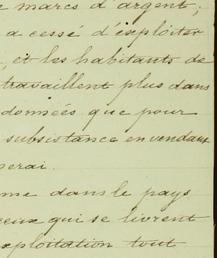 marcs d'argent;
a cessé d'exploiter
, et les habitants de
travaillent plus dans
données que pour
subsistance en vendant
serai.
me dans le pays
ceux qui se livrent
xploitation tout